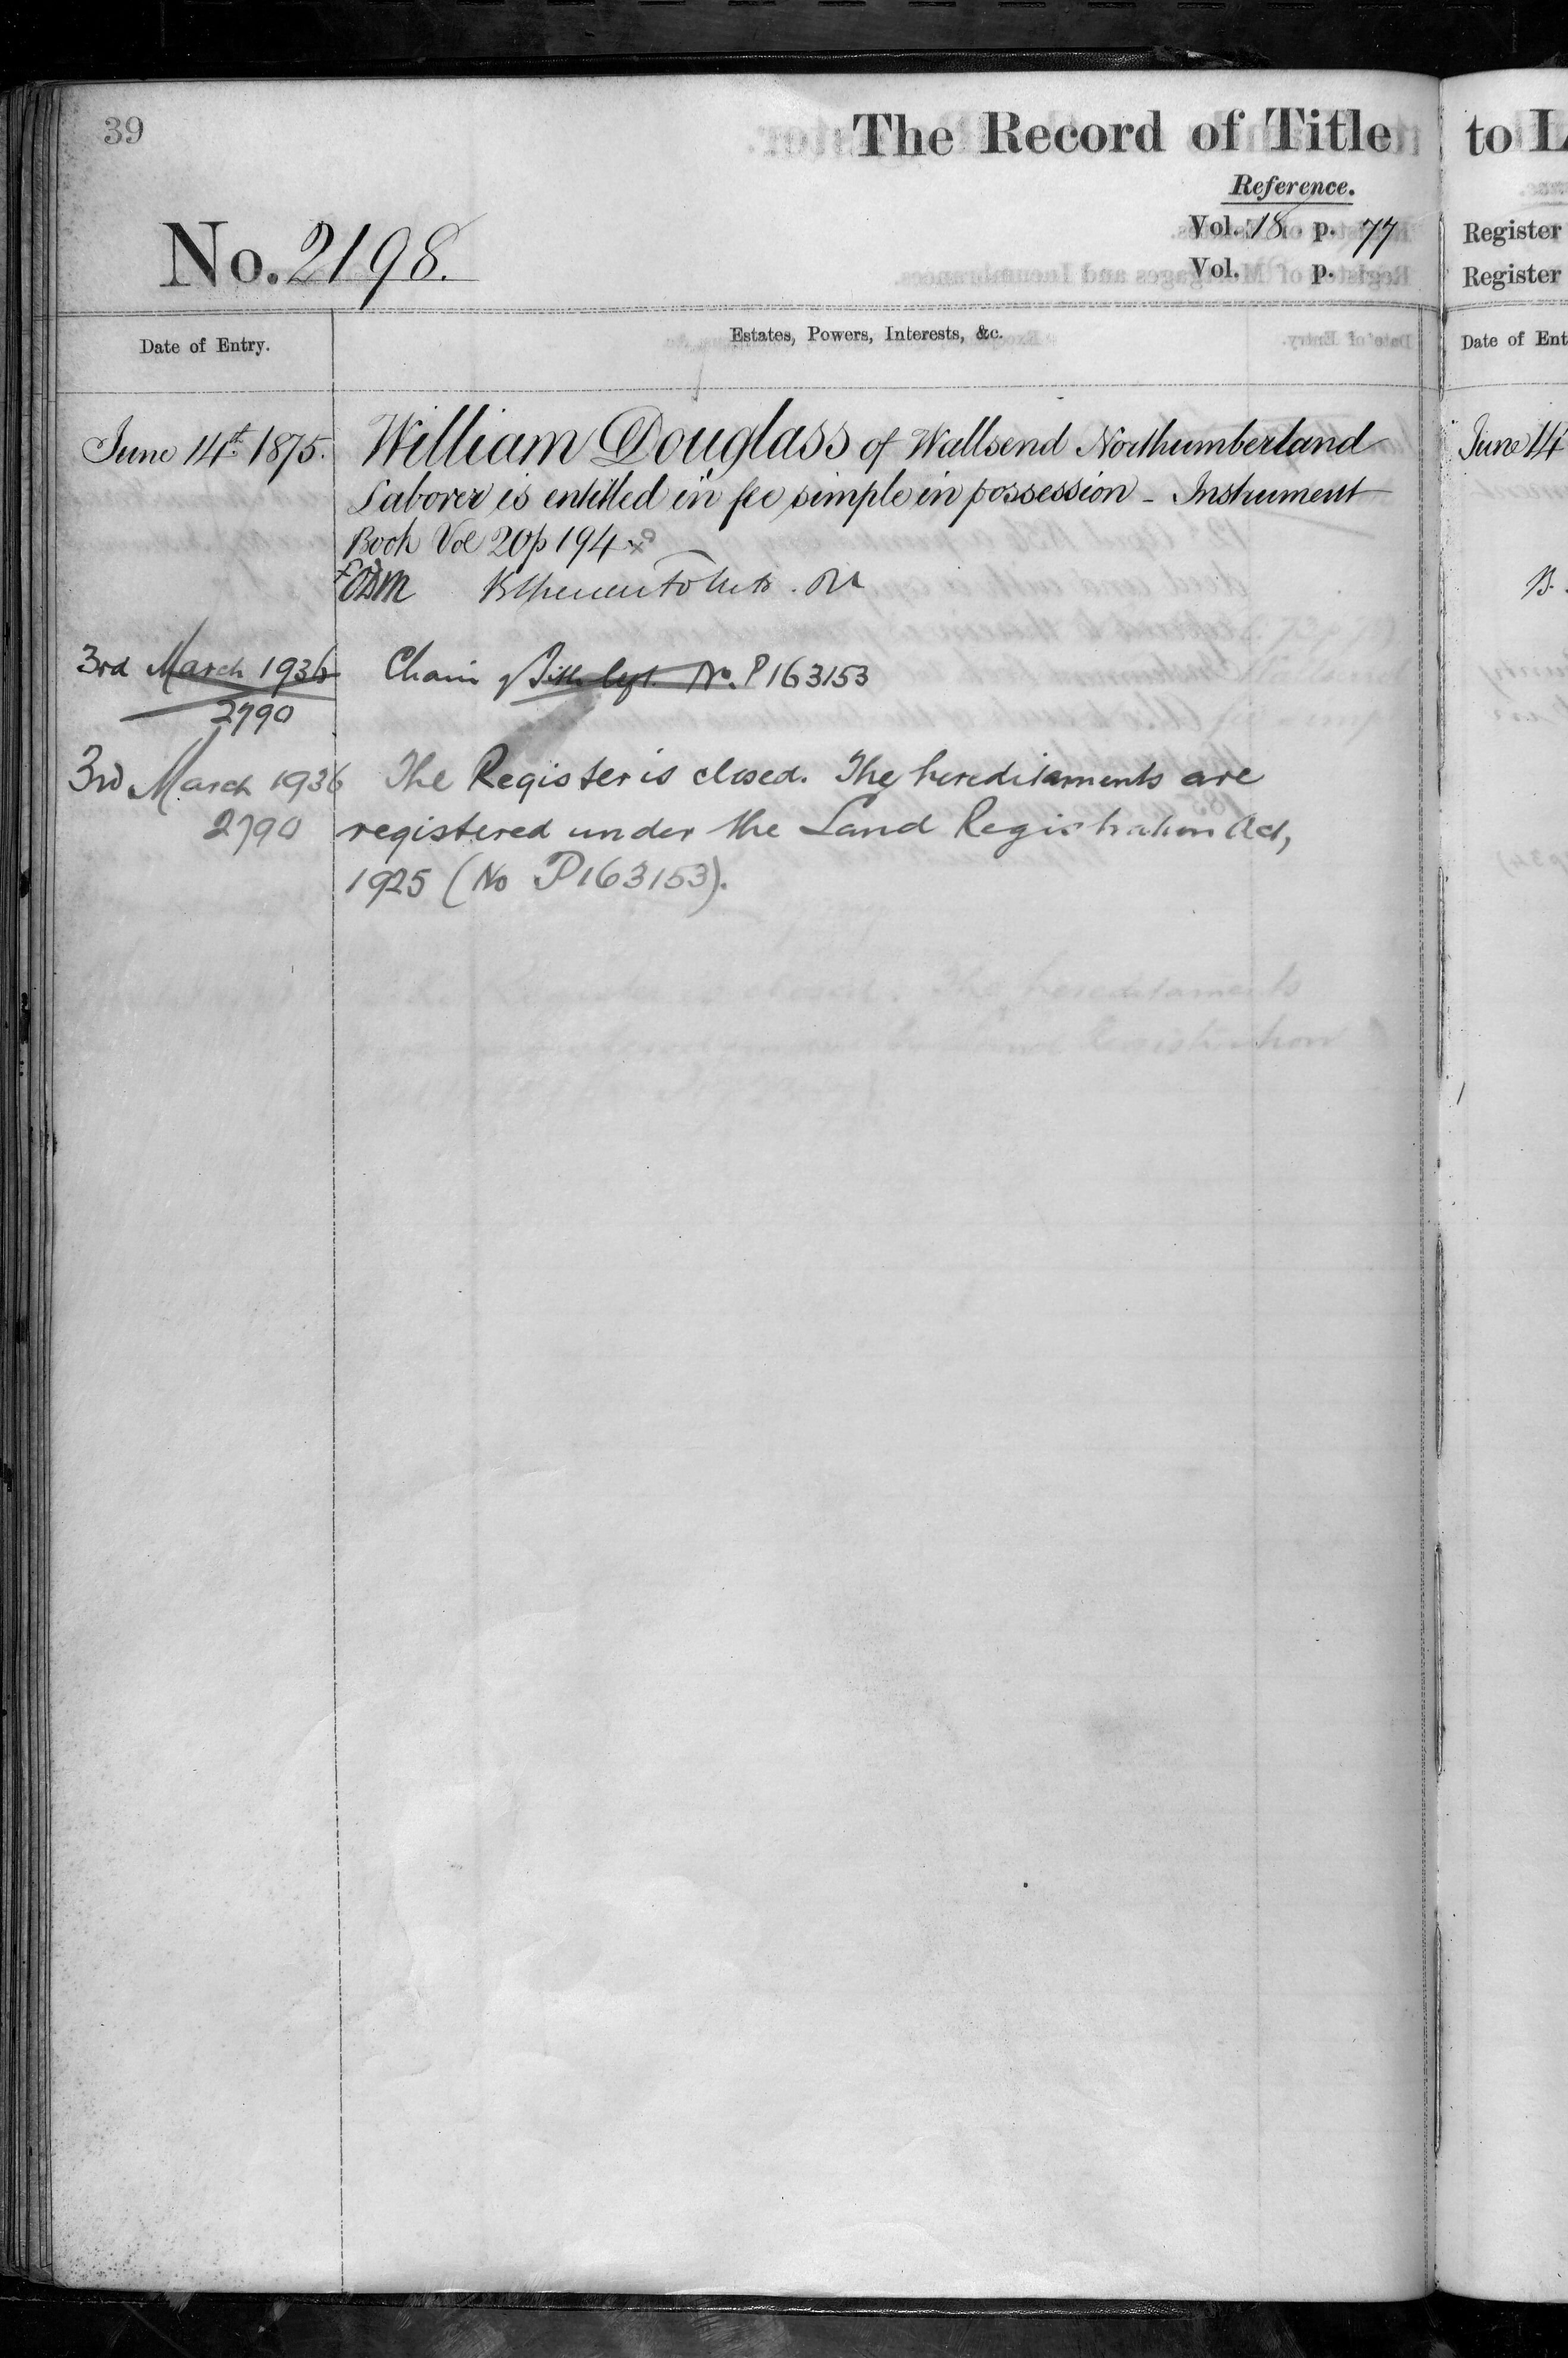 39
The Record of Title
Reference.
No. 2198.
Vol. 18 p. 77
Vol. p.
Date of Entry.
Estates, Powers, Interests, &c.
June 14th 1875. William Douglass of Wallsend Northumberland
Laborer is entitled in fee simple in possession - Instrument
Book Vol 20 p 194
3rd March 1936 Title No. P163153
2790
3rd March 1936 The Register is closed. The hereditaments are
2790 registered under the Land Registration Act,
1925 (No P163153).
to L
Register
Register
Date of Ent
June 14
B.